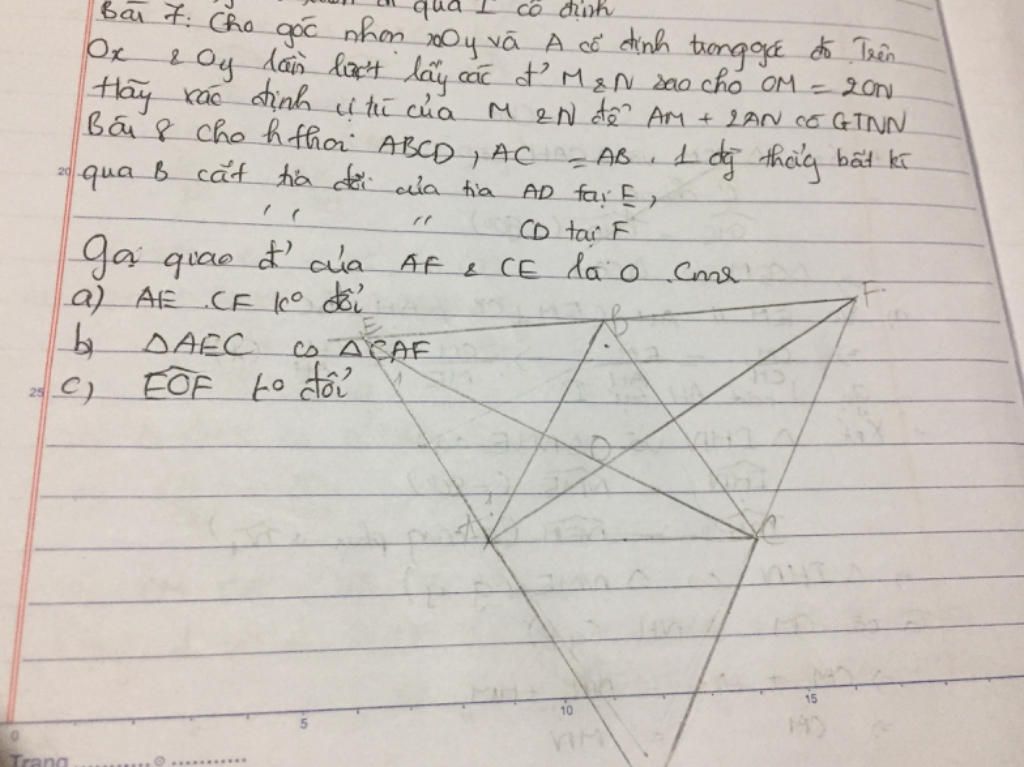 qua I cố định
Bài 7: Cho góc nhọn xOy và A cố định trong góc đó Trên
Ox & Oy lần lượt lấy các đ' M & N sao cho OM = 2ON
Hãy xác định vị trí của M & N để AM + 2AN có GTNN
Bài 8 Cho hthoi ABCD, AC = AB. 1 đg thẳng bất kì
20
qua B cắt tia đối của tia AD tại E,
'' '' CD tại F
Gọi giao đ' của AF & CE là O. Cmr
a) AE.CF ko đổi
b) ΔAEC ∽ ΔCAF
25
c) EOF ko đổi
E B F
O
A C
0 5 10 15
Trang